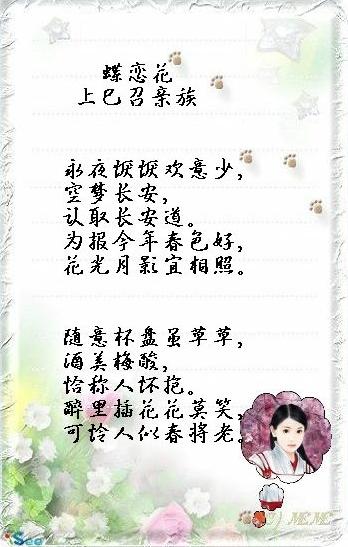 蝶恋花
上巳召亲族
永夜恹恹欢意少，
空梦长安，
认取长安道。
为报今年春色好，
花光月影宜相照。
随意杯盘虽草草，
酒美梅酸，
恰称人怀抱。
醉里插花花莫笑，
可怜人似春将老。
MEME
See